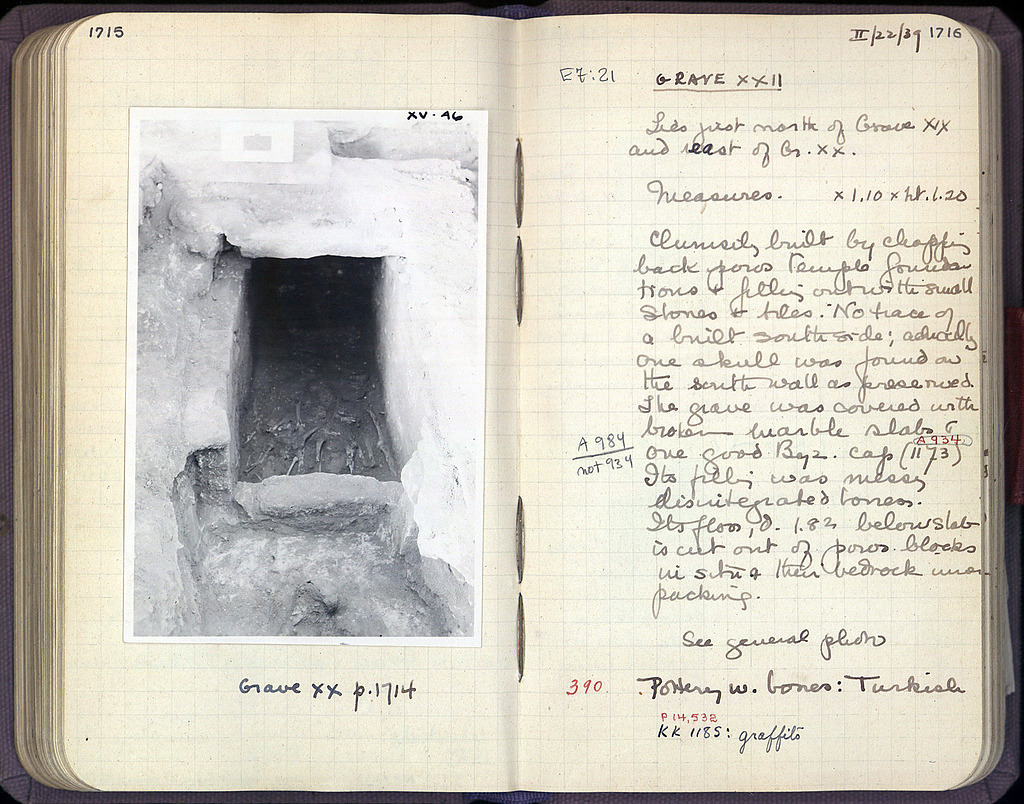 1715
XV · 46
Grave XX p.1714
II/22/39 1716
EZ:21 GRAVE XXII
Lies just north of Grave XIX
and east of Gr. XX.
Measures. x 1.10 x ht. 1.20
Clumsily built by chopping
back poros Temple founda-
tions & filling out with small
stones & tiles. No trace of
a built south side; actually
one skull was found on
the south wall as preserved.
The grave was covered with
broken marble slabs &
A 984
not 934
A 934
one good Byz. cap (1173)
Its filling was messy
disintegrated bones.
Its floor, d. 1.82 below slab
is cut out of poros blocks
in situ & their bedrock
packing.
See general photo
390. Pottery w. bones: Turkish
P 14,532
KK 1185: graffito